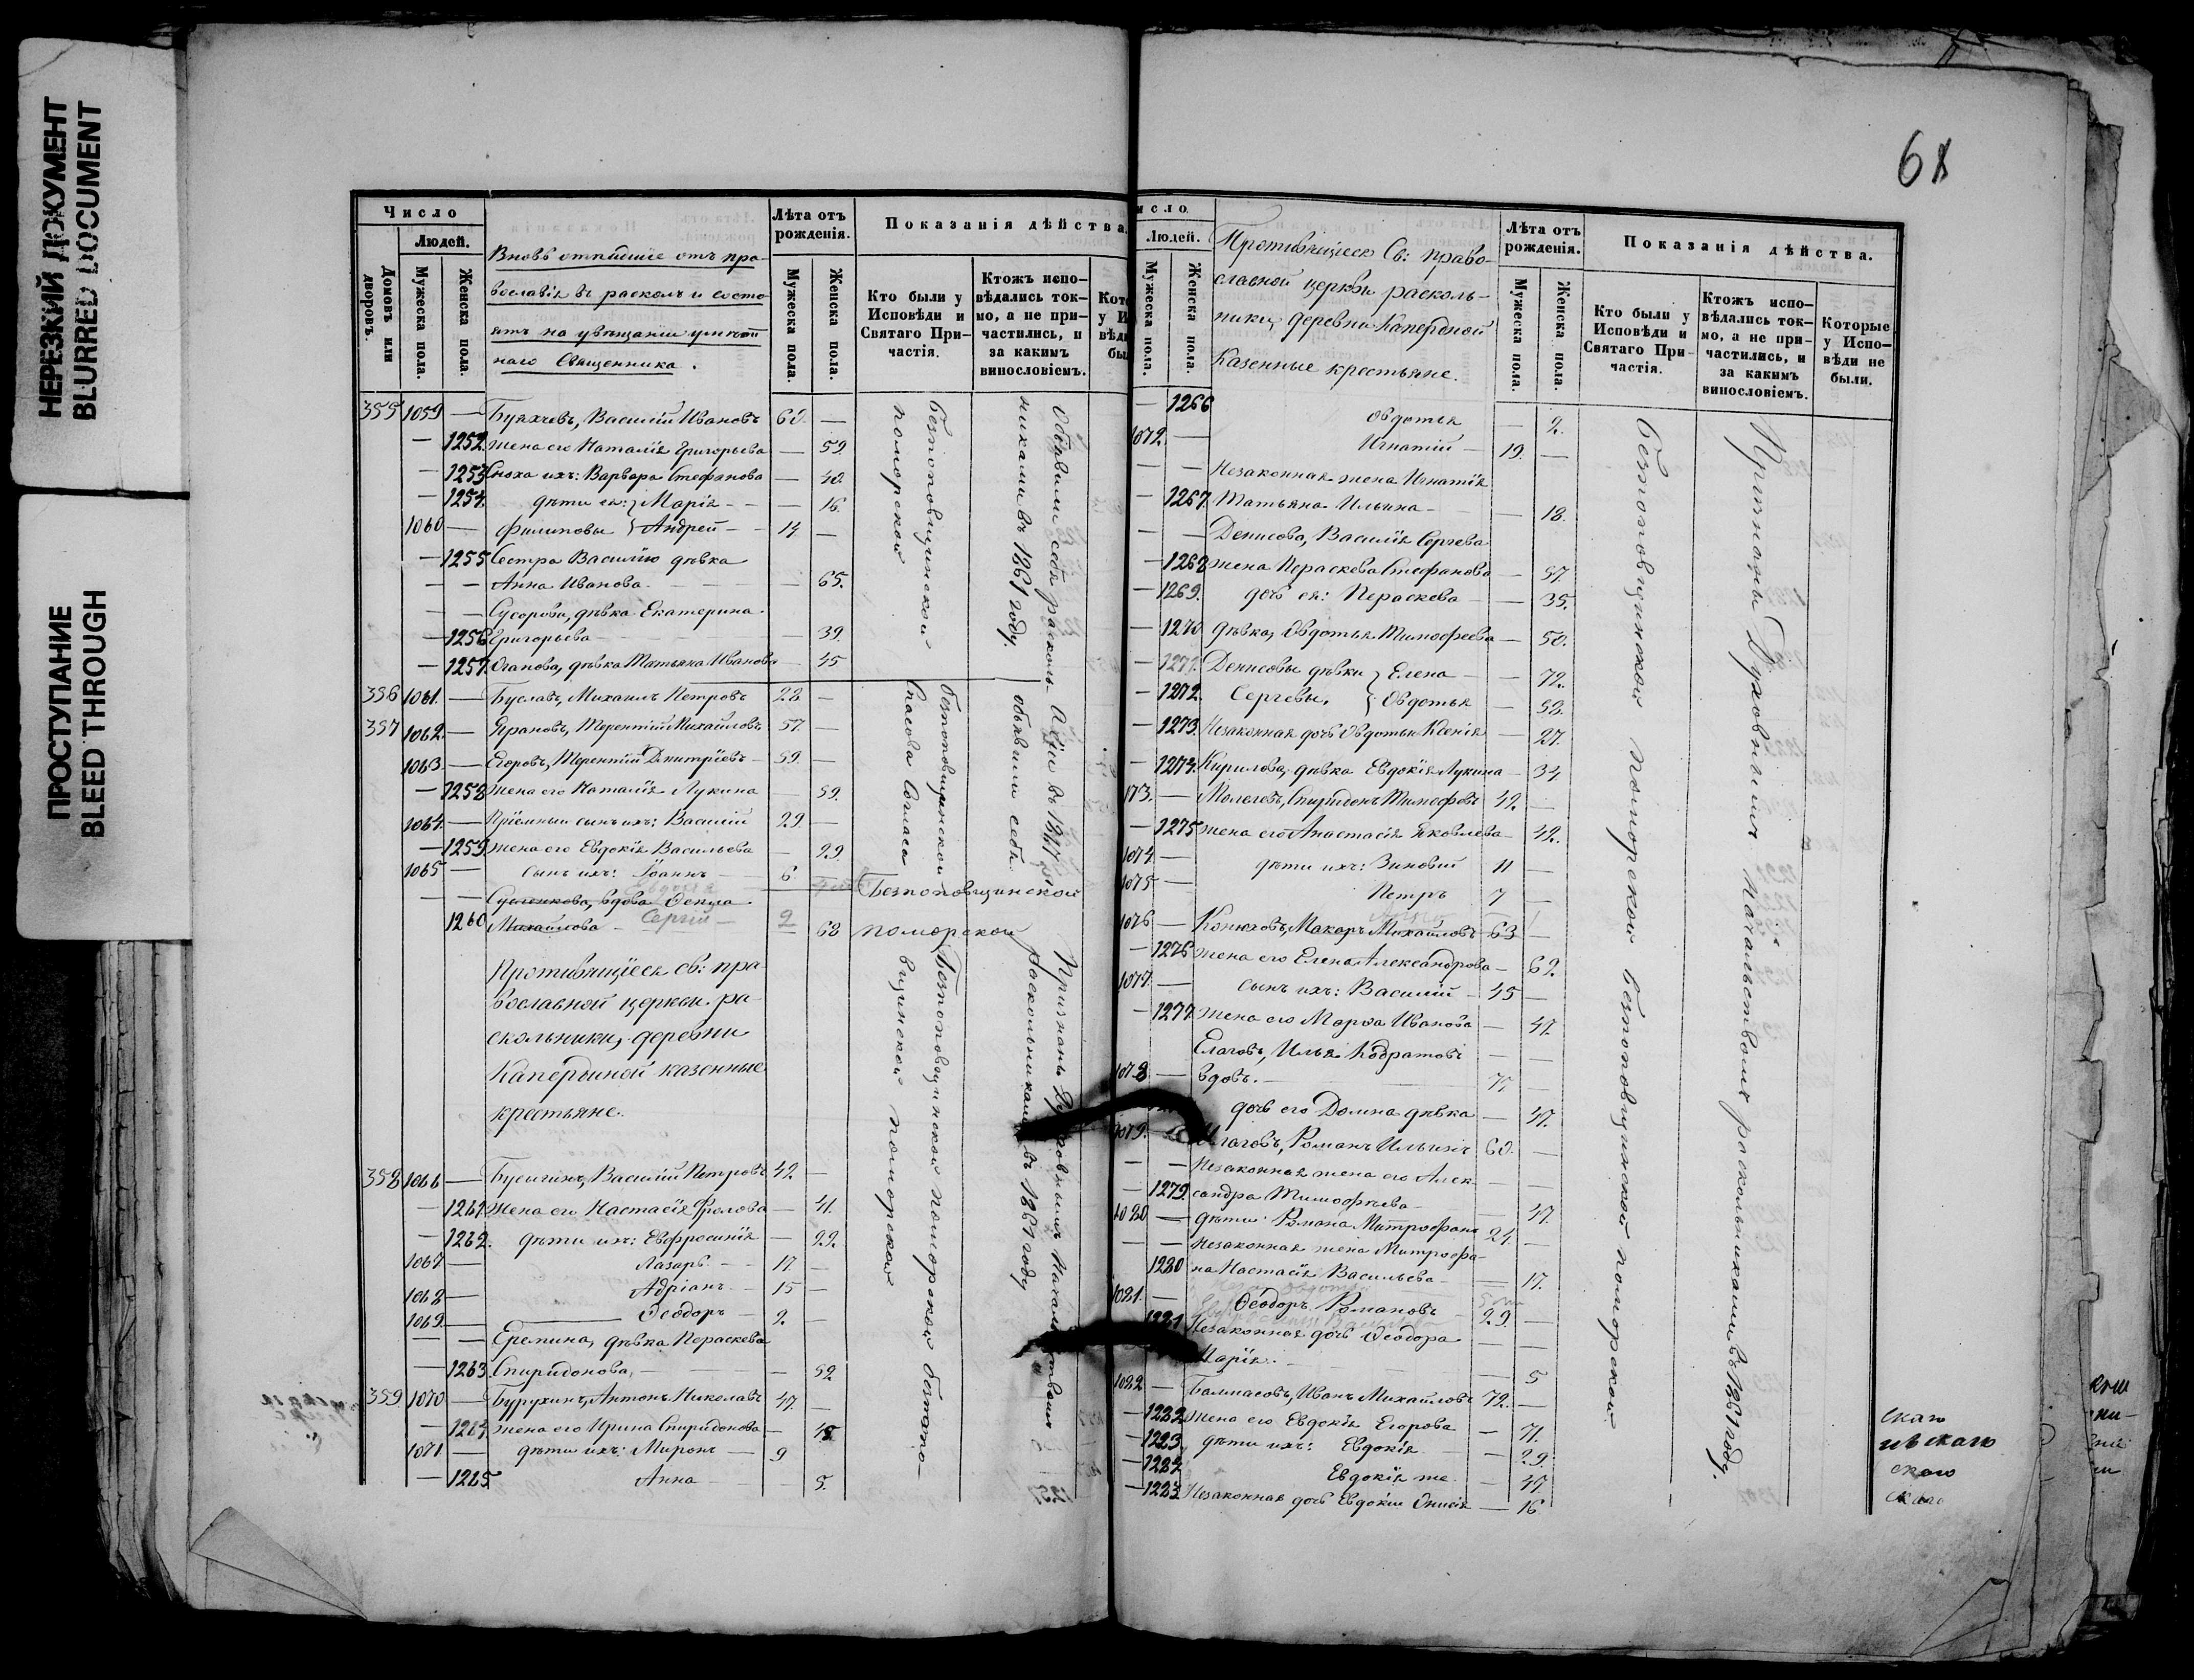 НЕРЕЗКИЙ ДОКУМЕНТ
BLURRED DOCUMENT
ПРОСТУПАНИЕ
BLEED THROUGH
Число
Людей.
Домовъ или дворовъ.
Мужеска пола.
Женска пола.
Вновь отпадшіе отъ пра-
вославія въ расколъ и состо
ятъ на увѣщаніи
наго Священника.
Лѣта отъ рожденія.
Мужеска пола.
Женска пола.
Показанія дѣйства
Кто были у Исповѣди и Святаго При-частія.
Ктожъ испо-вѣдались ток-мо, а не при-частились, и за какимъ винословіемъ.
355 1059 — Василій Ивановъ 60. —
— 1252. жена его Наталія Григорьева — 59.
— 1253 Сноха ихъ: Варвара Стефанова — 40.
— 1254. дѣти ея: } Марія — — 16.
1060 — Филиповы } Андрей — 14 —
— 1255 Сестра Василію дѣвка
— — Анна Иванова — 65.
— — дѣвка Екатерина
— 1256 Григорьева — 39.
— 1257. дѣвка Татьяна Иванова — 45
Безпоповщинской поморской
Объявили себя расколь-
никами въ 1861 году.
356 1061. — Михаилъ Петровъ 28 —
357 1062. — Терентій Михайловъ 57. —
1063. — Егоровъ, Терентій Дмитріевъ — 59. —
— 1258 жена его Наталія Лукина — 59.
1064. — Пріемный сынъ ихъ: Василій 29. —
— 1259. жена его Евдокія Васильева — 29.
1065 — сынъ ихъ: Іоаннъ 6. —
безпоповщинской
Спасова Согласа
объявили себя
вдова Ѳекла
1260 Михайлова Сергій — 2 — 68
Безпоповщинской
поморской
Противящіеся св: пра-
вославной церкви ра-
скольники, деревни
казенные
крестьяне.
358 1066 — Василій Петровъ 42 —
— 1261 жена его Настасія Фролова — 41.
— 1262. дѣти ихъ: Евфросинія — 22.
1067 — Лазарь — 17 —
1068 — Адріанъ — 15 —
1069 — Ѳеодоръ — 2. —
— — Еремина, дѣвка Параскева
— 1263 Спиридонова, — 52
359 1070 — Антонъ Николаевъ 47. —
— 1264 жена его Ирина Спиридонова — 45
1071 — дѣти ихъ: Миронъ — 9
— 1265 Анна — 5.
Безпоповщинской поморской
Признаны Духовнымъ Начальствомъ
раскольниками въ 1861 году
68
исло
Людей.
Мужеска пола.
Женска пола.
Противящіеся Св: право-
славной церкви расколь-
ники, деревни
Казенные крестьяне.
Лѣта отъ рожденія.
Мужеска пола.
Женска пола.
Показанія дѣйства.
Кто были у Исповѣди и Святаго При-частія.
Ктожъ испо-вѣдались ток-мо, а не при-частились, и за какимъ винословіемъ.
Которые у Испо-вѣди не были.
— 1266 Овдотья — 2.
1072 — Игнатій — 19. —
— — Незаконная жена Игнатія
— 1267. Татьяна Ильина — — 18.
— — Денисова, Василія Сергева
— 1268 жена Пераскева Стефанова — 57
— 1269. дочь ея: Пераскева — 35.
— 1270 дѣвка, Овдотья Тимофеева — 50.
— 1271. Денисовы дѣвки } Елена — 72.
— 1272. Сергевы, } Овдотья — 58.
— 1273. Незаконная дочь Овдотьи Ксенія — 27.
— 1274. Кирилова, дѣвка Евдокія Лукина — 34
173. — Спиридонъ Тимофевъ 42. —
— 1275 жена его Анастасія Яковлева — 42.
1074 — дѣти ихъ: Зиновій 11 —
1075 — Петръ 7 —
1076 — Конюховъ, Макаръ Михайловъ 63 —
— 1276 жена его Елена Александрова — 62.
1077. — сынъ ихъ: Василій — 45 —
— 1277 жена его Марѳа Иванова — 47.
Елаговъ, Илья Кодратовъ — —
1078 — вдовъ. —
дочь его Домна дѣвка — 47.
1079. — Романъ Ильинъ 60. —
— — Незаконная жена его Алек-
— 1279. сандра Тимофеева — 47.
1080 — дѣти Романа Митрофанъ 21. —
— — Незаконная жена Митрофа-
1280 на Настасія Васильева — 17.
1081. — Ѳеодоръ Романовъ 29. —
1281 Незаконная дочь Ѳеодора — —
Марія. — 5
1082 — Иванъ Михайловъ 72. —
— 1282 жена его Евдокія Егорова — 71.
— 1283. дѣти ихъ: Евдокія — 29.
— 1284. Евдокія же — 47.
— 1285 Незаконная дочь Евдокіи Онисія — 16
Безпоповщинской поморской безпоповщинской поморской
Признаны Духовнымъ Начальствомъ раскольниками въ 1861 году.